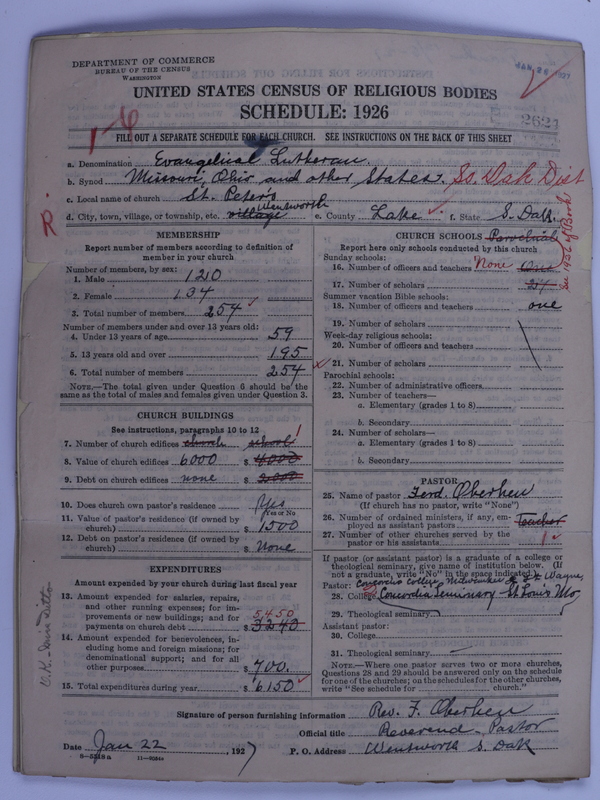 DEPARTMENT OF COMMERCE
BUREAU OF THE CENSUS
WASHINGTON
UNITED STATES CENSUS OF RELIGIOUS BODIES
SCHEDULE: 1926
2621
1-6
FILL OUT A SEPARATE SCHEDULE FOR EACH CHURCH. SEE INSTRUCTIONS ON THE BACK OF THIS SHEET
a. Denomination Evangelical Lutheran
b. Synod Missouri, Ohio and other States. So. Dak Dist
c. Local name of church St. Peter's
R
d. City, town, village, or township, etc. village Wentworth e. County Lake f. State S. Dak.
MEMBERSHIP
Report number of members according to definition of
member in your church
Number of members, by sex:
1. Male 120
2. Female 134
3. Total number of members 254
Number of members under and over 13 years old:
4. Under 13 years of age 59
5. 13 years old and over 195
6. Total number of members 254
NOTE.—The total given under Question 6 should be the
same as the total of males and females given under Question 3.
CHURCH BUILDINGS
See instructions, paragraphs 10 to 12
7. Number of church edifices church school 1
8. Value of church edifices 6000 $
9. Debt on church edifices none $
10. Does church own pastor's residence Yes
Yes or No
11. Value of pastor's residence (if owned by
church) $ 1500
12. Debt on pastor's residence (if owned by
church) $ None
EXPENDITURES
Amount expended by your church during last fiscal year
13. Amount expended for salaries, repairs,
and other running expenses; for im-
provements or new buildings; and for
payments on church debt $ 3240 5450
14. Amount expended for benevolences, in-
cluding home and foreign missions; for
denominational support; and for all
other purposes $ 700.
15. Total expenditures during year $ 6150
CHURCH SCHOOLS Parochial
Report here only schools conducted by this church
Sunday schools:
16. Number of officers and teachers None One
17. Number of scholars 21
Summer vacation Bible schools:
18. Number of officers and teachers one
19. Number of scholars
Week-day religious schools:
20. Number of officers and teachers
21. Number of scholars
Parochial schools:
22. Number of administrative officers
23. Number of teachers—
a. Elementary (grades 1 to 8)
b. Secondary
24. Number of scholars—
a. Elementary (grades 1 to 8)
b. Secondary
PASTOR
25. Name of pastor Ferd. Oberheu
(If church has no pastor, write "None")
26. Number of ordained ministers, if any, em-
ployed as assistant pastors Teacher
27. Number of other churches served by the
pastor or his assistants 1
If pastor (or assistant pastor) is a graduate of a college or
theological seminary, give name of institution below. (If
not a graduate, write "No" in the space indicated)
Pastor: Concordia College, Milwaukee & Ft Wayne,
28. College Concordia Seminary St Louis Mo,
29. Theological seminary
Assistant pastor:
30. College
31. Theological seminary
NOTE.—Where one pastor serves two or more churches,
Questions 28 and 29 should be answered only on the schedule
for one of the churches; on the schedules for the other churches,
write "See schedule for church."
Signature of person furnishing information Rev. F. Oberheu
Official title Reverend - Pastor
Date Jan 22, 1927 P. O. Address Wentworth S. Dak